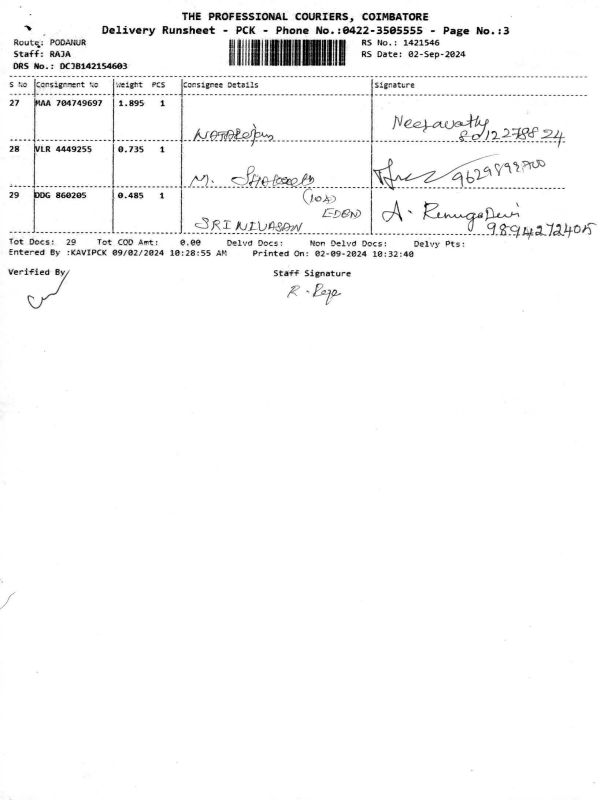 THE PROFESSIONAL COURIERS, COIMBATORE
Delivery Runsheet - PCK - Phone No.:0422-3505555 - Page No.:3
Route: PODANUR RS No.: 1421546
Staff: RAJA RS Date: 02-Sep-2024
DRS No.: DCJB142154603
S No Consignment No Weight PCS Consignee Details Signature
27 MAA 704749697 1.895 1
28 VLR 4449255 0.735 1
M.
29 DDG 860205 0.485 1 (10A) A. Renuga Devi
EDEN
SRINIVASAN 9894272405
Tot Docs: 29 Tot COD Amt: 0.00 Delvd Docs: Non Delvd Docs: Delvy Pts:
Entered By :KAVIPCK 09/02/2024 10:28:55 AM Printed On: 02-09-2024 10:32:40
Verified By Staff Signature
R. Raja